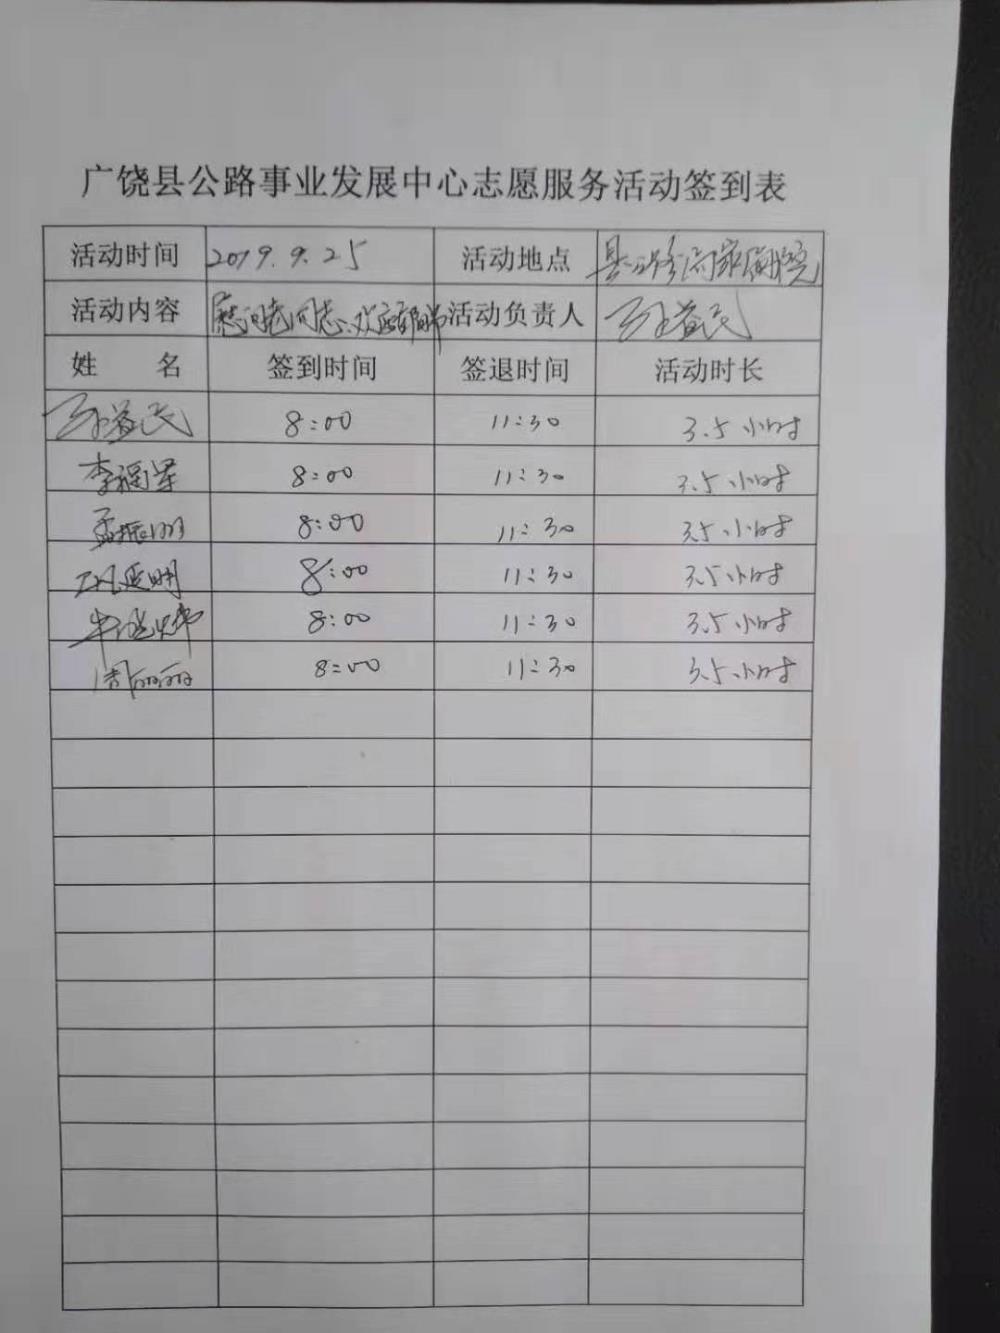 广饶县公路事业发展中心志愿服务活动签到表
活动时间 2019.9.25 活动地点 县公路局家属院
活动内容 慰问老同志、欢度国庆节 活动负责人
姓 名 签到时间 签退时间 活动时长
8:00 11:30 3.5小时
李福军 8:00 11:30 3.5小时
孟振明 8:00 11:30 3.5小时
8:00 11:30 3.5小时
8:00 11:30 3.5小时
周丽丽 8:00 11:30 3.5小时